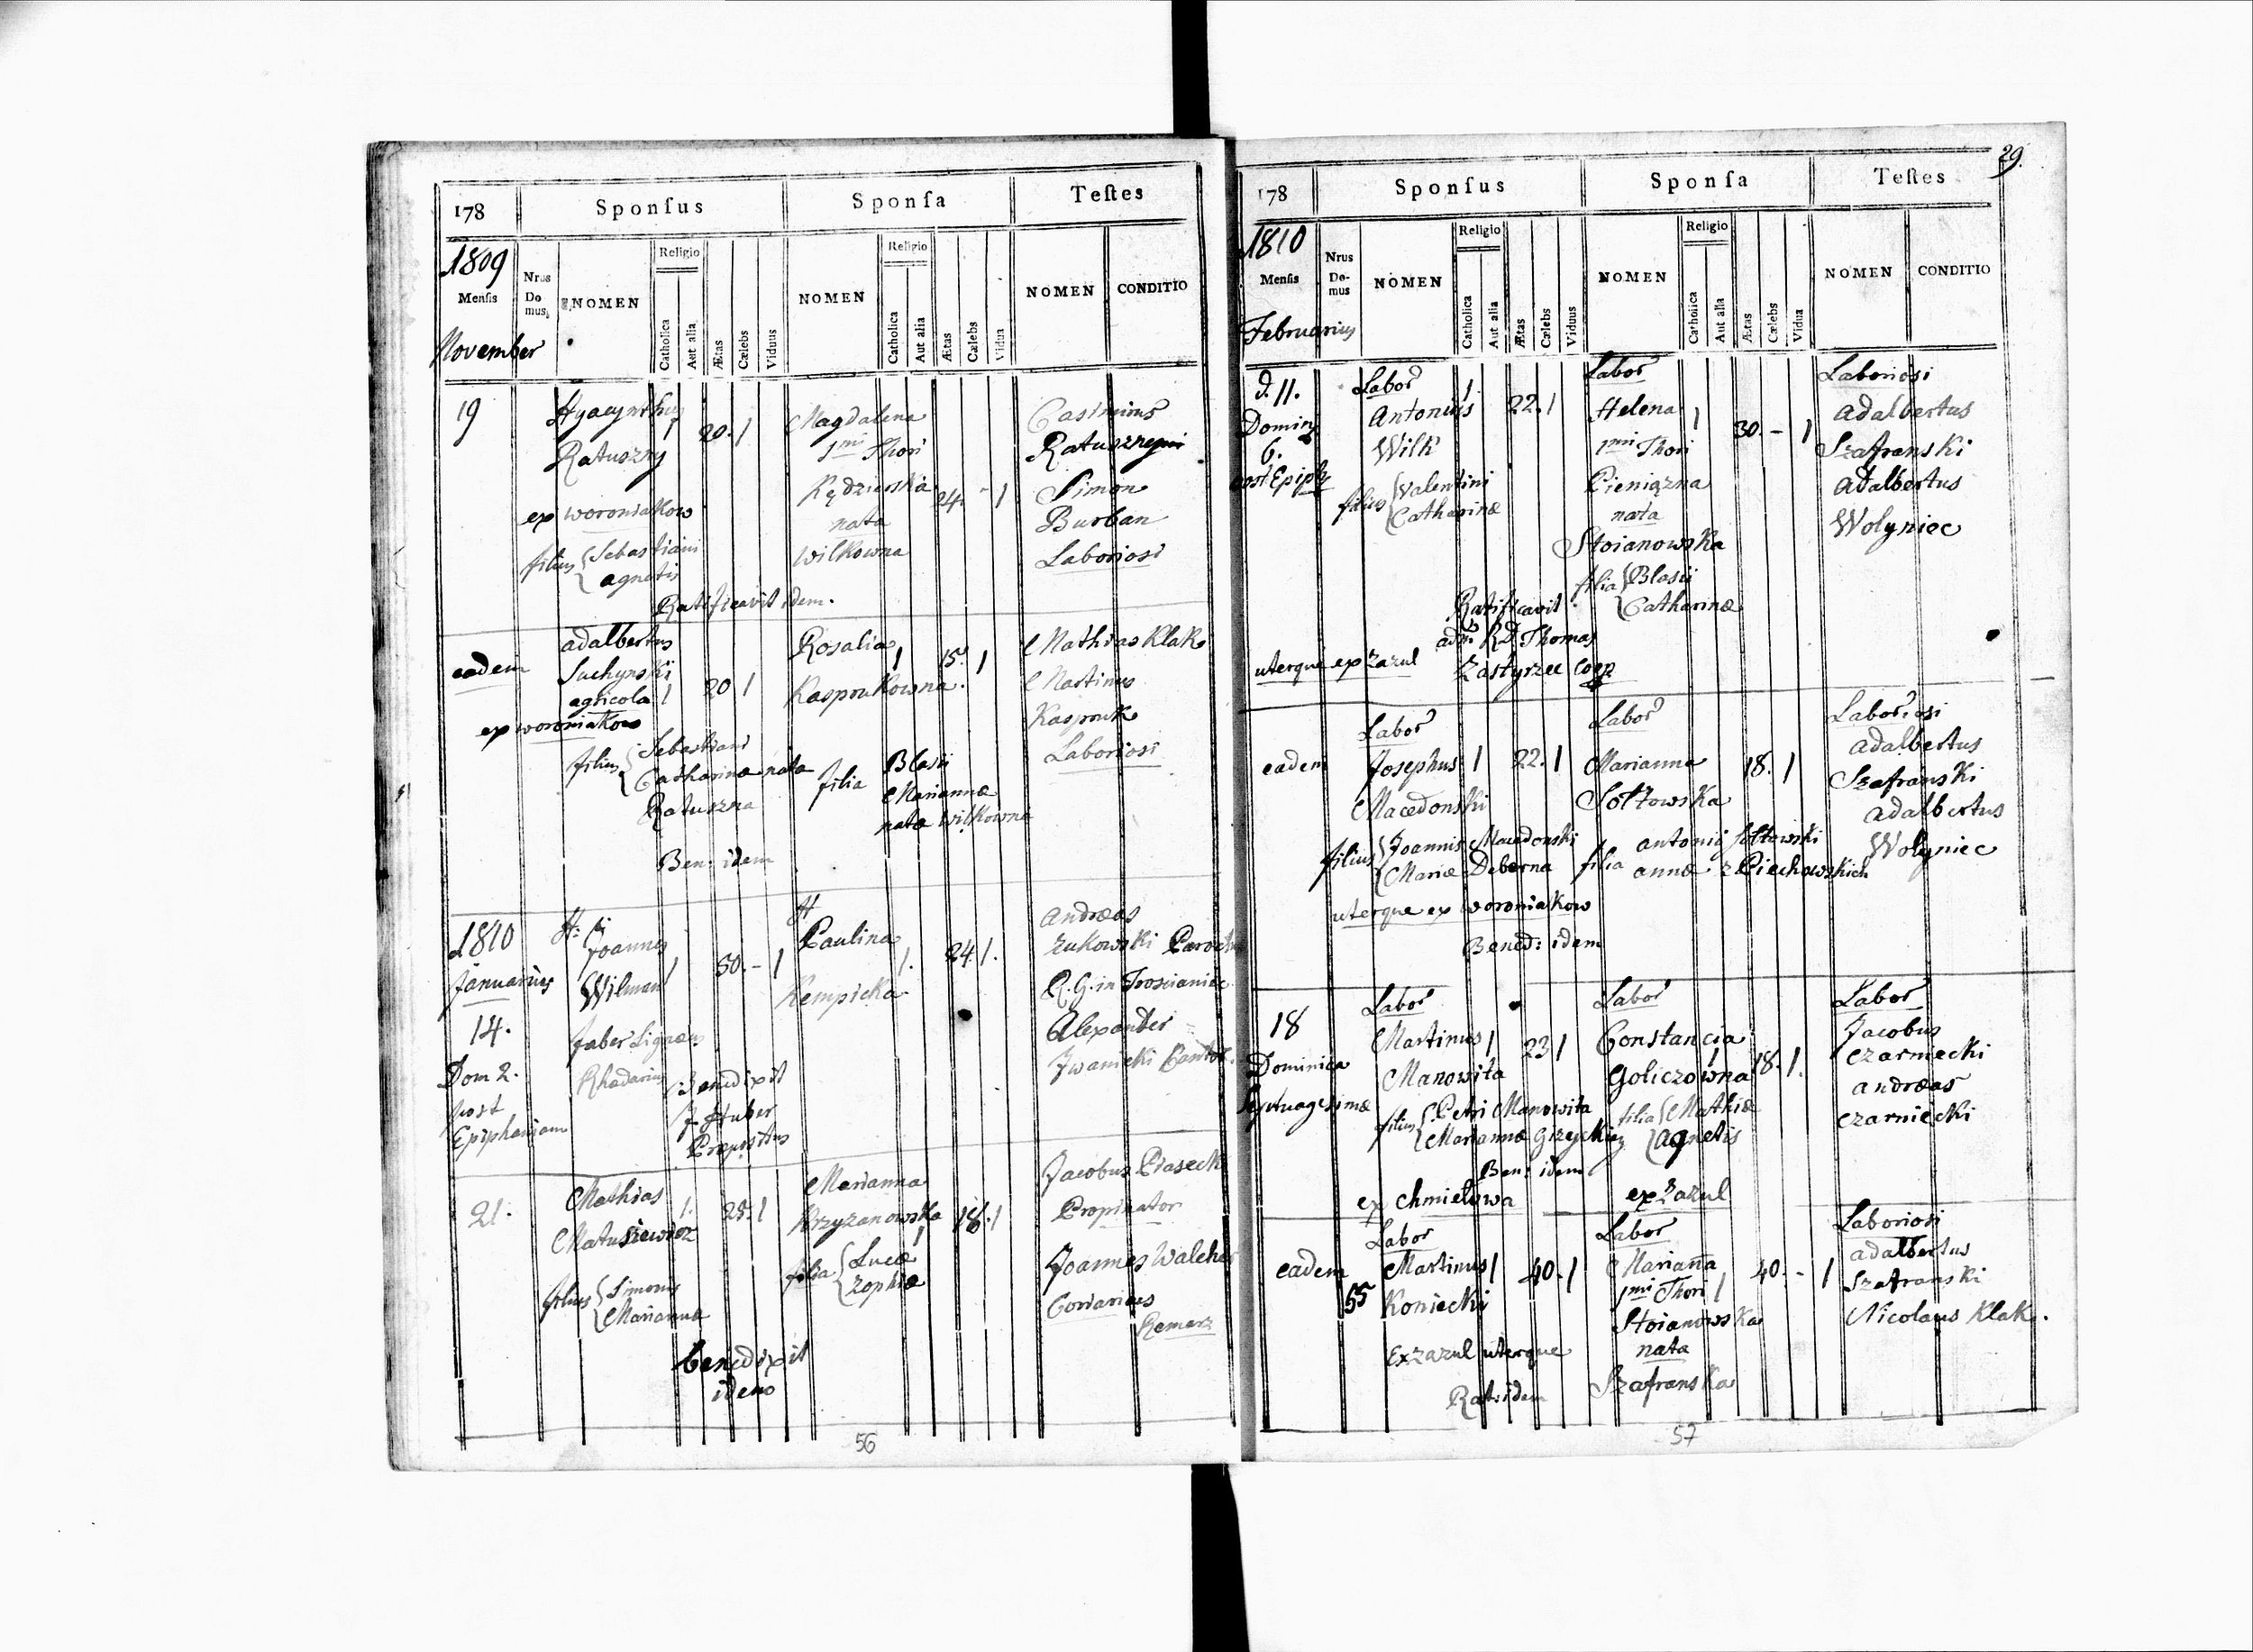 178
Sponſus
Sponſa
Teſtes
1809
Menſis
November
Nrus Do mus,
NOMEN
Religio
Catholica
Aut alia
Ætas
Cælebs
Viduus
NOMEN
Religio
Catholica
Aut alia
Ætas
Cælebs
Vidua
NOMEN
CONDITIO
19
Hyacynthus
Ratuszny
1
20. 1
ex woroniakow
filius { Sebastiani
agnetis
Magdalena
1mi Thori
Kędzierska
nata
wilkowna
24. - 1
Casimirus
Ratuszny
Simon
Burban
Laboriosi
Ratificavit idem.
eadem
adalbertus
Suchynski
agricola 1
20 1
ex woroniakow
filius { Sebastiani
Catharinæ nata
Ratuszna
Rosalia 1
15. 1
Kasprukowna.
filia
Blasii
Mariannæ
nata Wilkowna
Mathias Klak
Martinus
Kaspruk
Laboriosi
Ben: idem
1810
Januarius
14.
Dom 2.
post
Epiphaniam
Joannes
Wilman 1
30. - 1
faber Lignarius
Rhadarius
Benedixit
J Huber
Præpositus
H
Paulina
Kempicka
1. 24. 1.
Andreas
Zukowski Paroch
R. G. in Trościaniec
Alexander
Iwanicki Cantor.
21.
Mathias 1.
Matuszewicz
filius { Simonis
Mariannæ
Marianna
Krzyzanowska 1
18. 1
filia { Lucæ
Zophiæ
Jacobus Piasecki
Propinator
Joannes Walcher
Coriarius
benedixit
idem
56
29.
178
Sponſus
Sponſa
Teſtes
1810
Menſis
Februarius
Nrus Do- mus
NOMEN
Religio
Catholica
Aut alia
Ætas
Cælebs
Viduus
NOMEN
Religio
Catholica
Aut alia
Ætas
Cælebs
Vidua
NOMEN
CONDITIO
d. 11.
Domin
6.
post Epiph
Labor
Antonius 1
22. 1
Wilk
filius { Valentini
Catharinæ
Labor
Helena 1
1mi Thori
30. - 1
Pieniązna
nata
Stoianowska
filia { Blasii
Catharinæ
Laboriosi
adalbertus
Szafranski
adalbertus
Wolyniec
Ratificavit
adm. Rd Thomas
Zastyrzec Coop
uterque ex zazul
eadem
Labor
Josephus 1
22. 1
Macedonski
filius { Joannis Macedonski
Mariæ Deberna
Labor
Marianna
18. 1
Sołtowska
filia antonij sołtowski
annæ z Piechowskich
Laboriosi
adalbertus
Szafranski
adalbertus
Wolyniec
uterque ex woroniakow
Bened: idem
18
Dominica
Septuagesimæ
Labor
Martinus 1
23 1
Manowita
filius { Petri Manowita
Mariannæ
Labor
Constancia 1
Goliczowna
18. 1.
filia { Mathiæ
Agnetis
Labor
Jacobus
Czarniecki
andreas
Czarniecki
Ben: idem
ex Chmielowa
ex zazul
eadem
55
Labor
Martinus 1
40. 1
Koniecki
Labor
Marianna
1mi Thori 1
40. - 1
Stoianowska
nata
Szafranska
Laboriosi
adalbertus
Szafranski
Nicolaus Klak.
Ex zazul uterque
Rat: idem
57